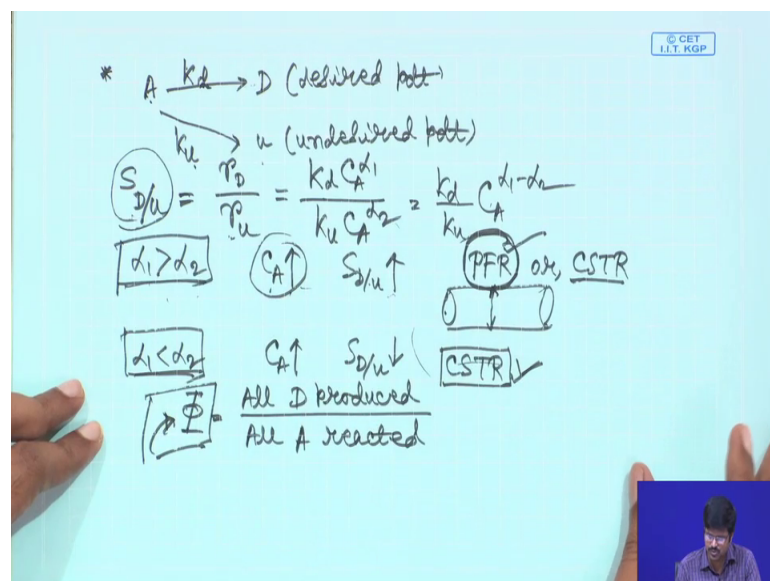 © CET
I.I.T. KGP
* A —Kd→ D (desired pdt)
Ku → u (undesired pdt)
S_{D/u} = r_D / r_u = Kd C_A^{α1} / Ku C_A^{α2} = kd / ku C_A^{α1-α2}
α1 > α2 C_A↑ S_{D/u}↑ PFR or, CSTR
α1 < α2 C_A↑ S_{D/u}↓ CSTR ✓
Φ = All D produced / All A reacted